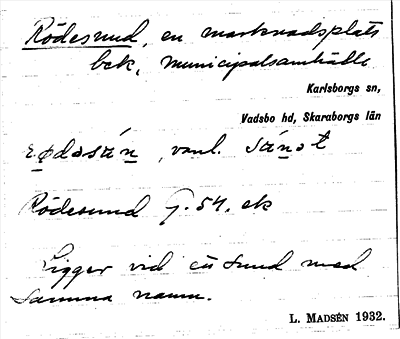 Rödesund, en marknadsplats
bek, municipalsamhälle
Karlsborgs sn,
Vadsbo hd, Skaraborgs län
vanl.
Rödesund G. 54. ek
Ligger vid ett sund med
samma namn.
L. MADSÉN 1932.